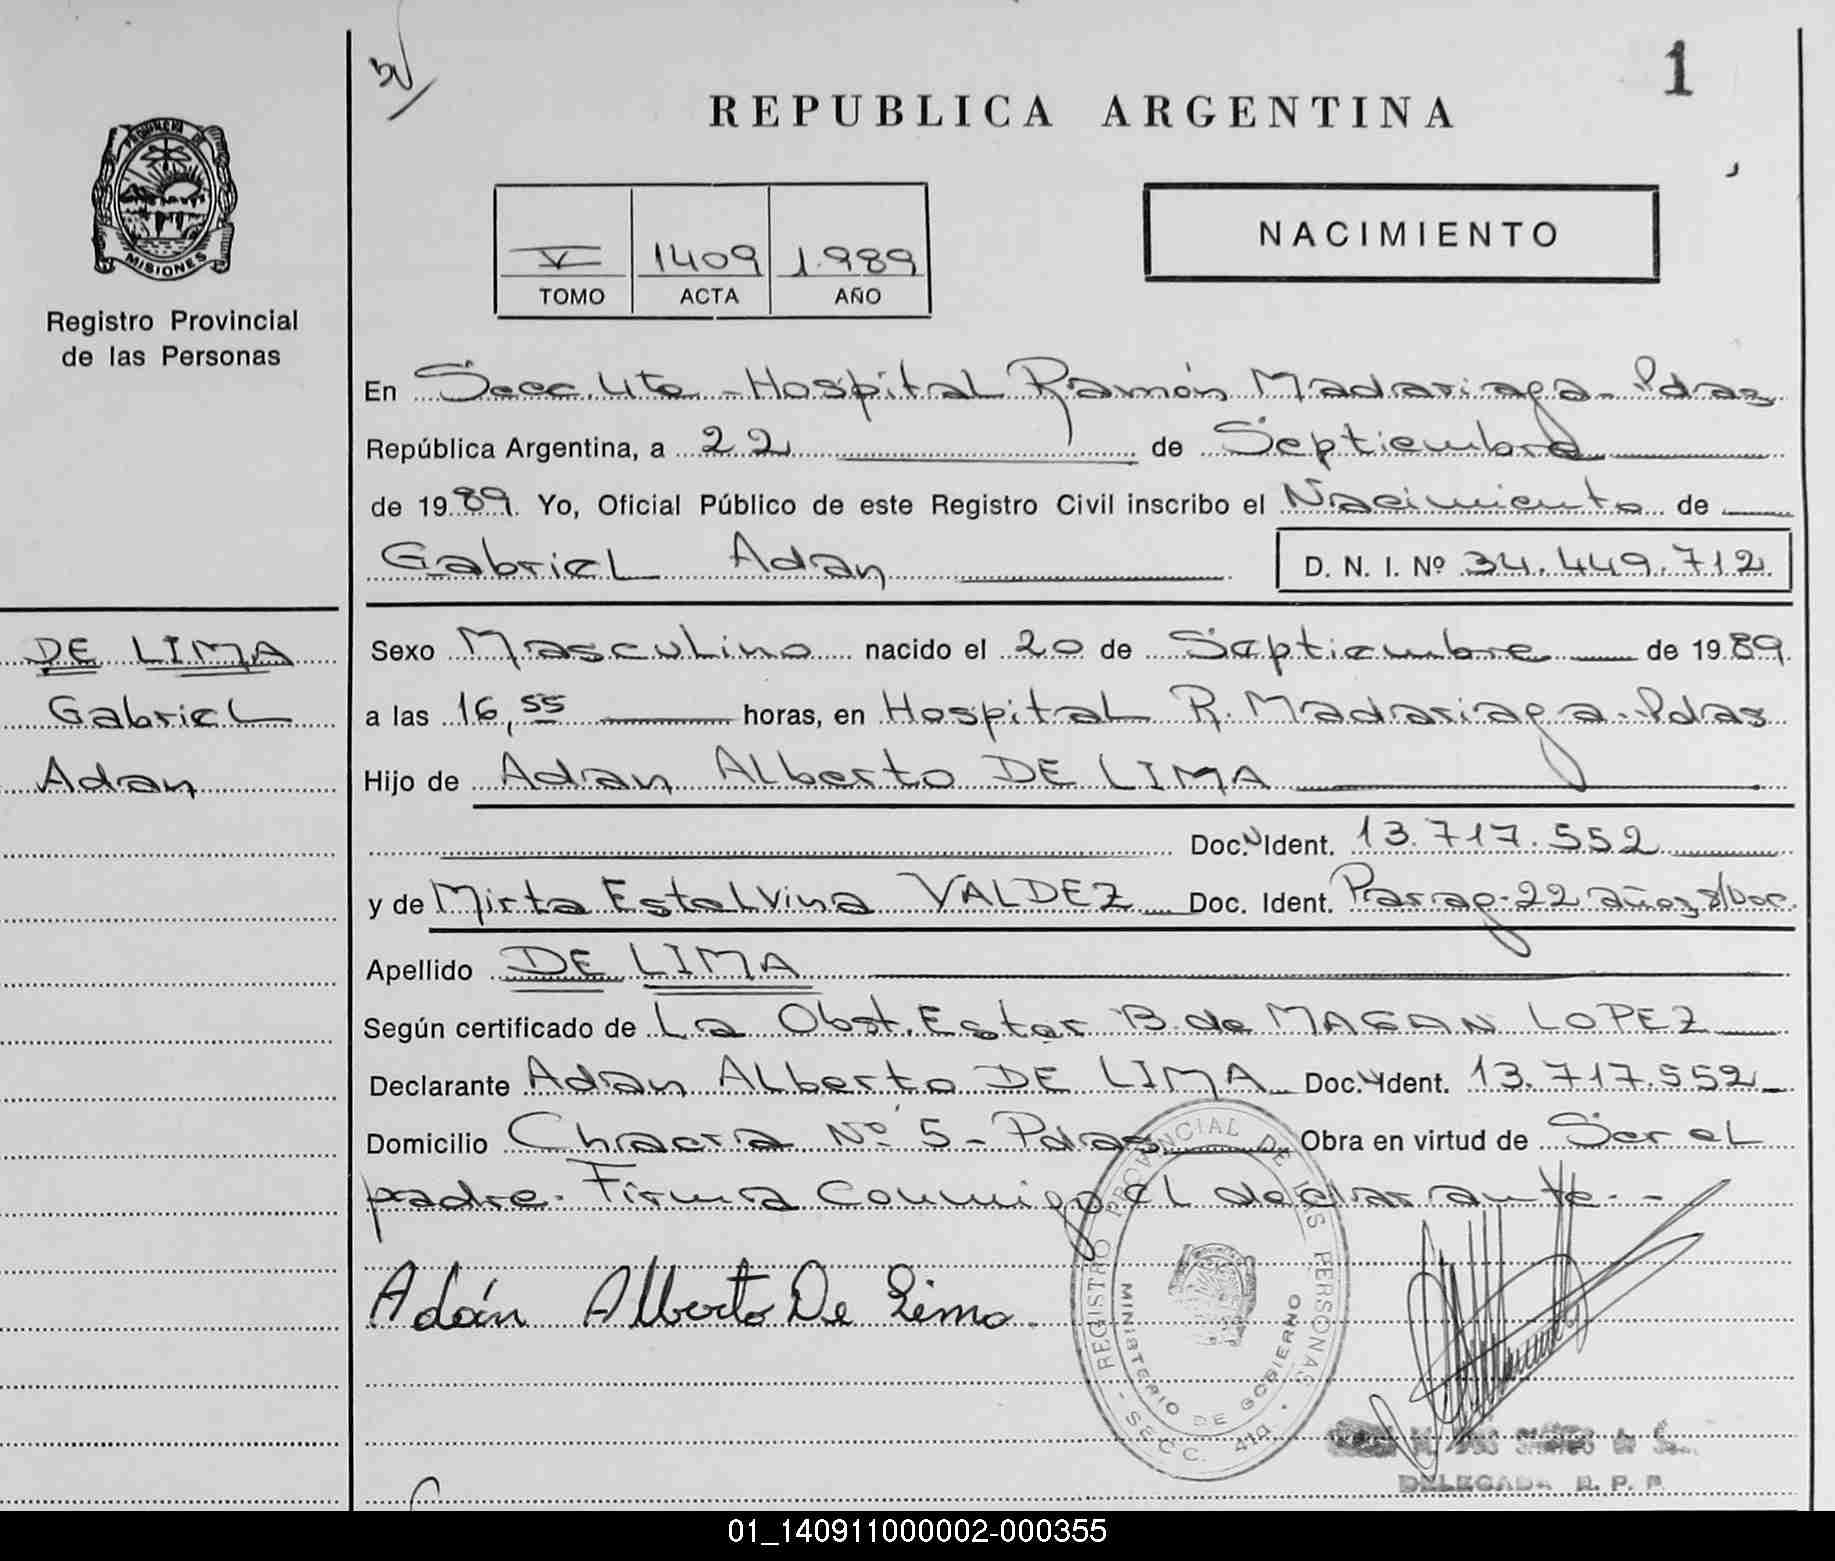 1
REPUBLICA ARGENTINA
PROVINCIA DE
MISIONES
Registro Provincial
de las Personas
NACIMIENTO
V 1409 1.989
TOMO ACTA AÑO
En Secc. 4ta - Hospital Ramón Madariaga - Pdas
República Argentina, a 22 de Septiembre
de 1989. Yo, Oficial Público de este Registro Civil inscribo el Nacimiento de
Gabriel Adan D. N. I. Nº 34.449.712
DE LIMA
Gabriel
Adan
Sexo Masculino nacido el 20 de Septiembre de 1989.
a las 16,55 horas, en Hospital R. Madariaga - Pdas
Hijo de Adan Alberto DE LIMA
Doc. Ident. 13.717.552
y de Mirta Estelvina VALDEZ Doc. Ident. Parag. 22 años s/Doc.
Apellido DE LIMA
Según certificado de La Obst. Ester B. de MAGAN LOPEZ
Declarante Adan Alberto DE LIMA Doc. Ident. 13.717.552
Domicilio Chacra Nº 5 - Pdas Obra en virtud de Ser el
padre. Firma conmigo el declarante.-
Adán Alberto De Lima.
REGISTRO PROVINCIAL DE LAS PERSONAS
MINISTERIO DE GOBIERNO
- SECC. 4ta. -
DELEGADA R. P. P.
01_140911000002-000355